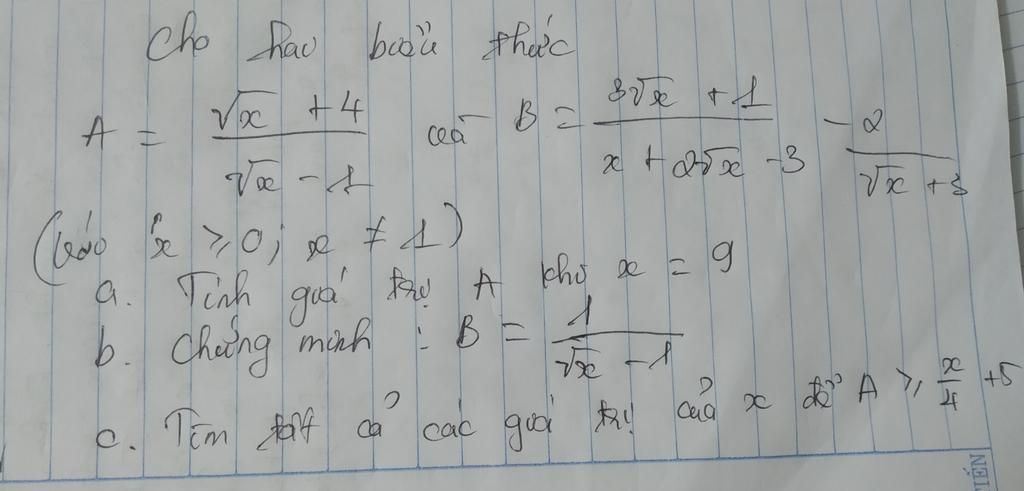 Cho hai biểu thức
A = \frac{\sqrt{x} + 4}{\sqrt{x} - 1} và B = \frac{3\sqrt{x} + 1}{x + 2\sqrt{x} - 3} - \frac{2}{\sqrt{x} + 3}
(với x ≥ 0; x ≠ 1)
a. Tính giá trị A khi x = 9
b. Chứng minh : B = \frac{1}{\sqrt{x} - 1}
c. Tìm tất cả các giá trị của x để A ≥ \frac{x}{4} + 5
TIẾN